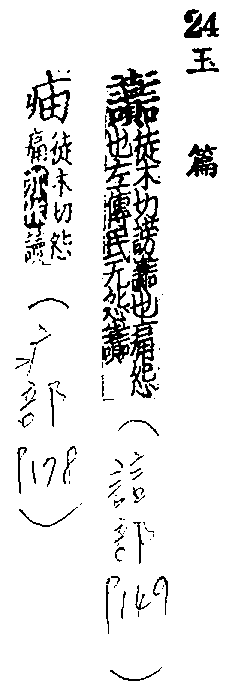 24 玉篇
讟 徒木切謗讟也痛怨
也左傳民无怨讟
(誩部 P149)
徒木切怨
痛
(疒部 P178)